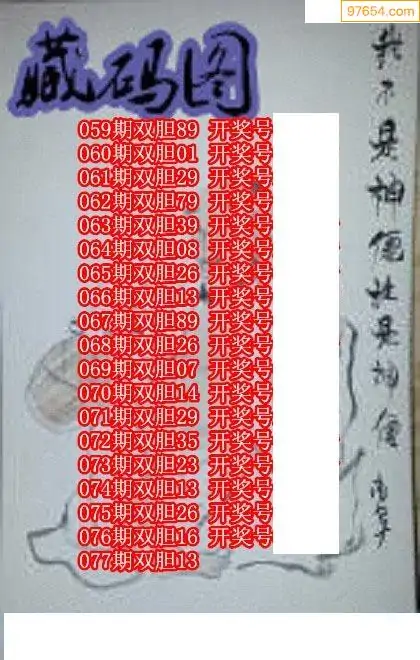 97654.com
藏码图
059期双胆89 开奖号
060期双胆01 开奖号
061期双胆29 开奖号
062期双胆79 开奖号
063期双胆39 开奖号
064期双胆08 开奖号
065期双胆26 开奖号
066期双胆13 开奖号
067期双胆89 开奖号
068期双胆26 开奖号
069期双胆07 开奖号
070期双胆14 开奖号
071期双胆29 开奖号
072期双胆35 开奖号
073期双胆23 开奖号
074期双胆13 开奖号
075期双胆26 开奖号
076期双胆16 开奖号
077期双胆13
我不是神但就是神